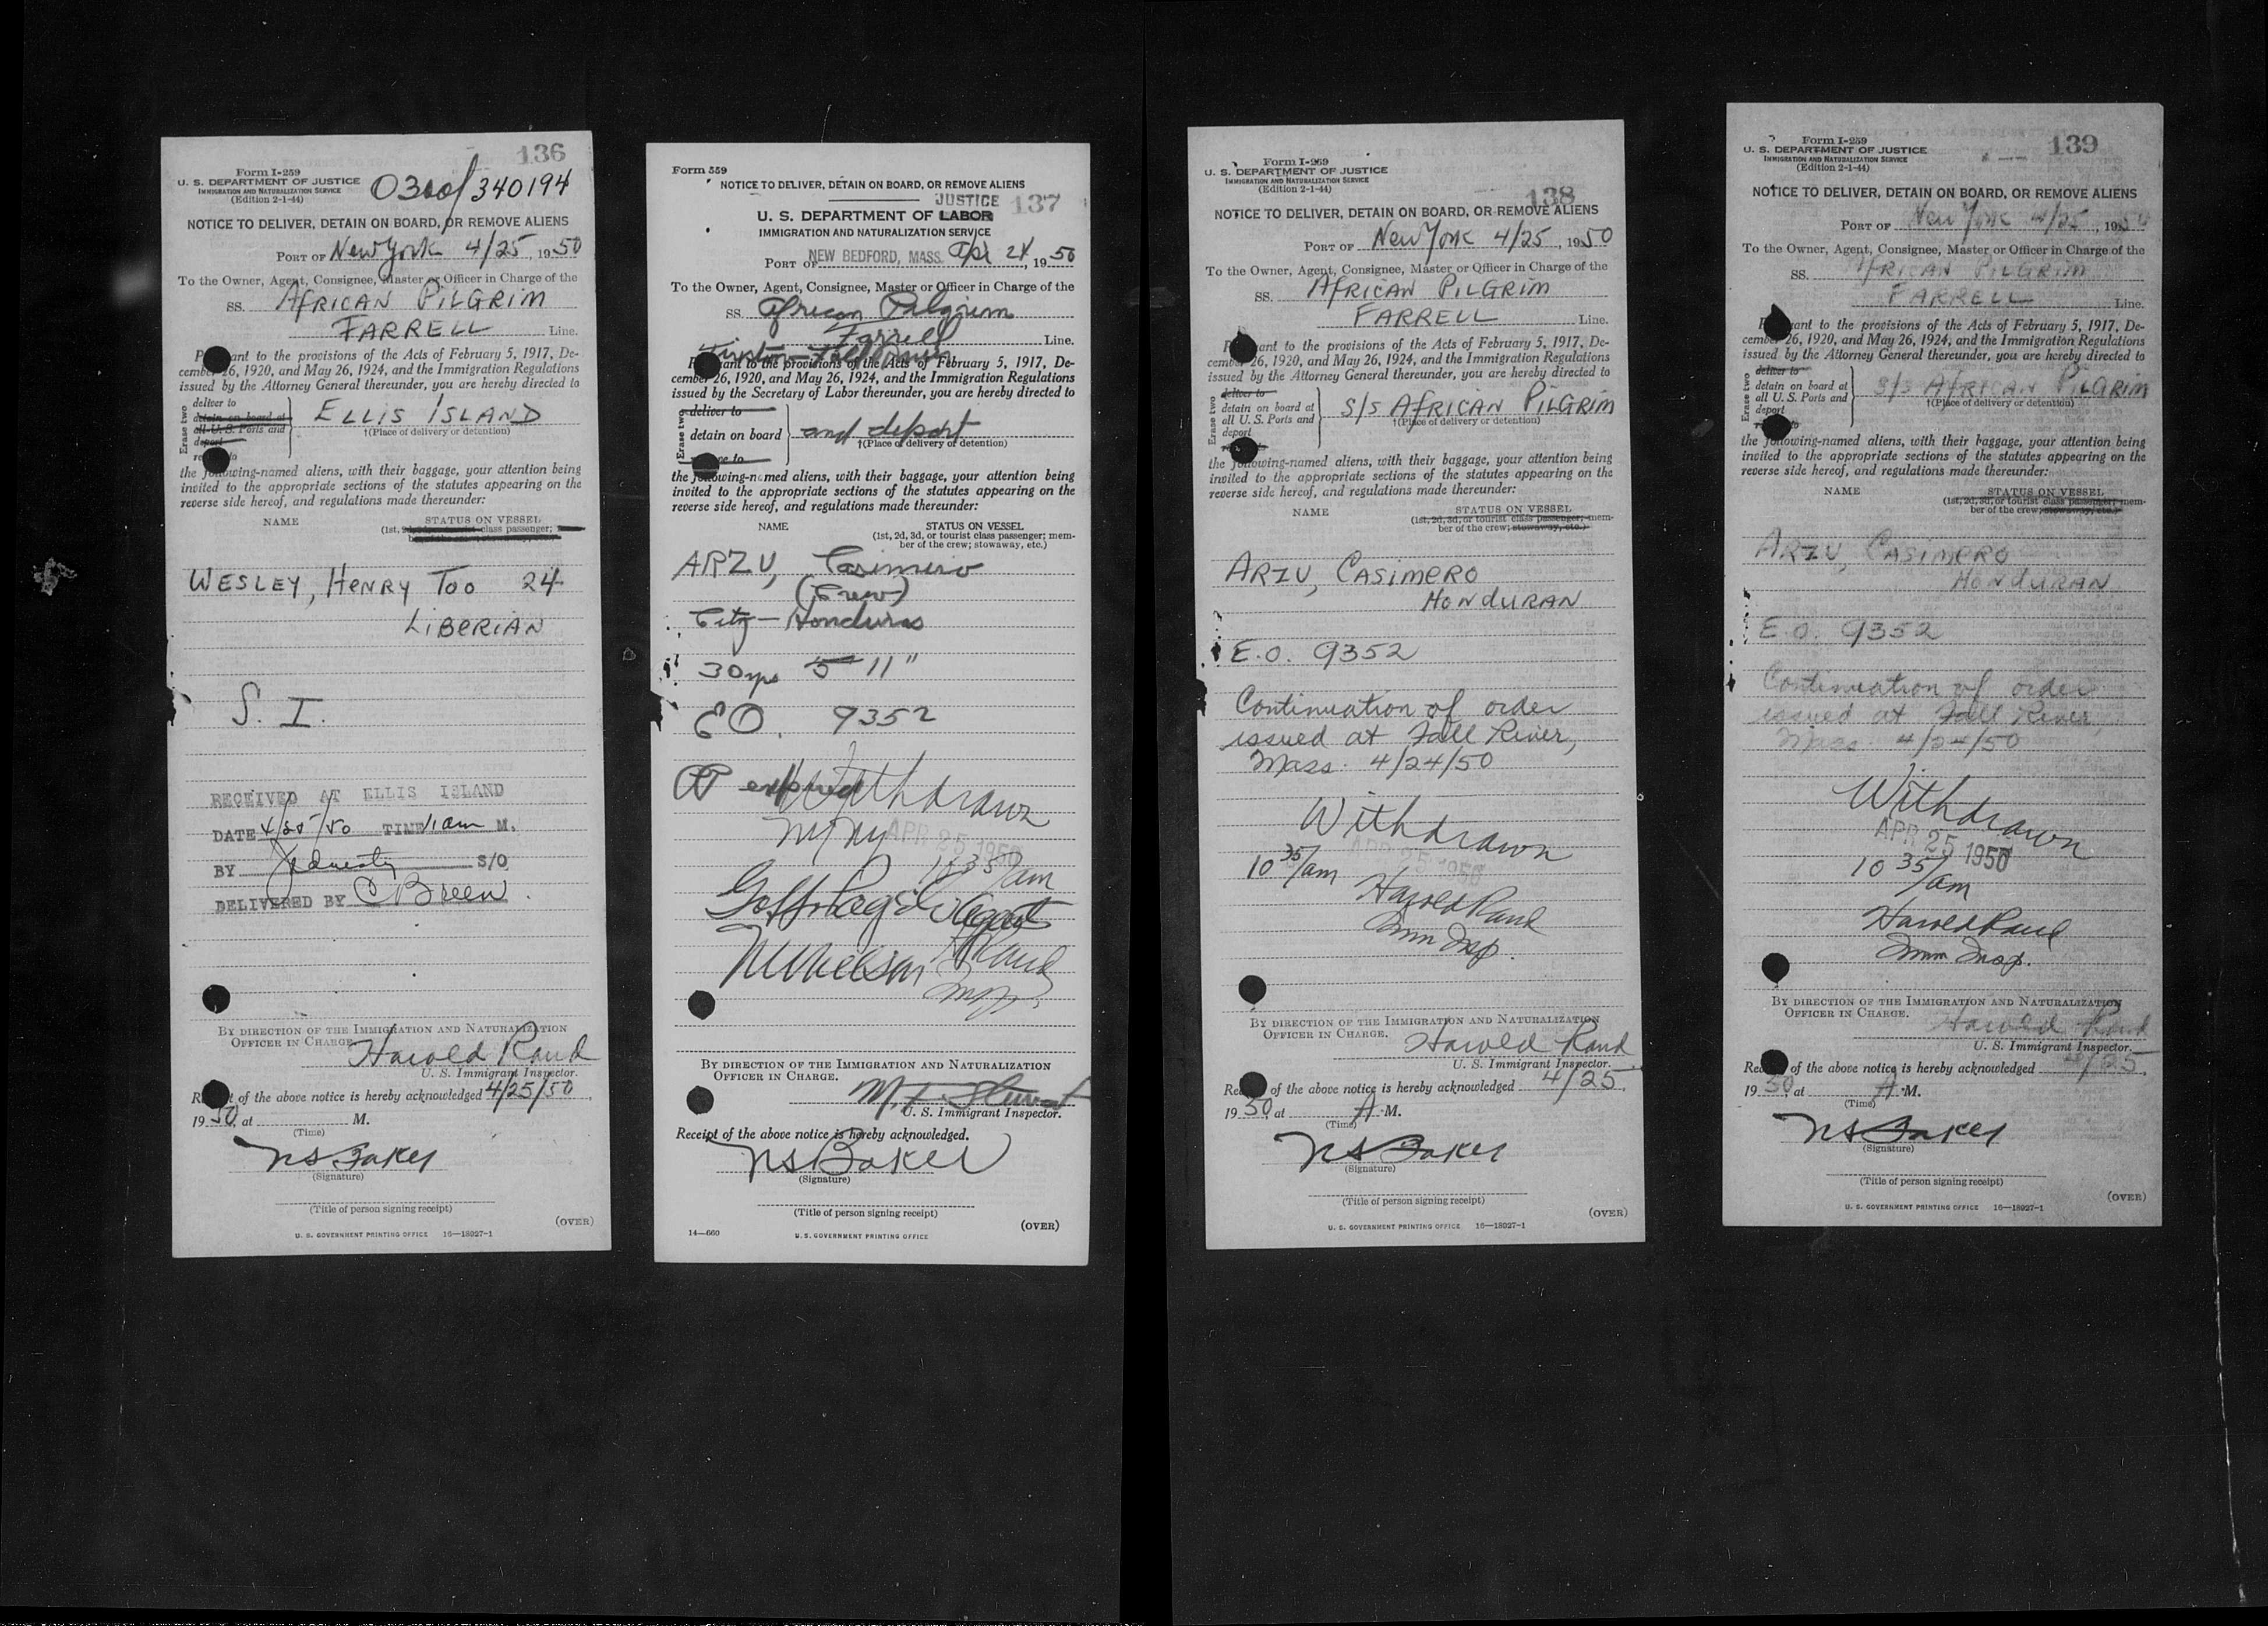 136
Form I-259
U. S. DEPARTMENT OF JUSTICE
IMMIGRATION AND NATURALIZATION SERVICE
(Edition 2-1-44)
340194
NOTICE TO DELIVER, DETAIN ON BOARD, OR REMOVE ALIENS
PORT OF New York 4/25, 1950
To the Owner, Agent, Consignee, Master or Officer in Charge of the
SS. AFRICAN PILGRIM
FARRELL Line.
ant to the provisions of the Acts of February 5, 1917, De-
cember 26, 1920, and May 26, 1924, and the Immigration Regulations
issued by the Attorney General thereunder, you are hereby directed to
Erase two
deliver to
detain on board at
all U. S. Ports and
deport
ELLIS ISLAND
†(Place of delivery or detention)
the following-named aliens, with their baggage, your attention being
invited to the appropriate sections of the statutes appearing on the
reverse side hereof, and regulations made thereunder:
NAME STATUS ON VESSEL
(1st, class passenger;
WESLEY, HENRY TOO 24
LIBERIAN
S. I.
RECEIVED AT ELLIS ISLAND
DATE 4/25/50 TIME 11am M.
BY S/O
DELIVERED BY C Breen
BY DIRECTION OF THE IMMIGRATION AND NATURALIZATION
OFFICER IN CHARGE.
Harold Rand
U. S. Immigrant Inspector.
of the above notice is hereby acknowledged 4/25/50,
1950, at M.
(Time)
NS Baker
(Signature)
(Title of person signing receipt)
(OVER)
U. S. GOVERNMENT PRINTING OFFICE 16—18927-1
Form 559
NOTICE TO DELIVER, DETAIN ON BOARD, OR REMOVE ALIENS
JUSTICE 137
U. S. DEPARTMENT OF LABOR
IMMIGRATION AND NATURALIZATION SERVICE
PORT OF NEW BEDFORD, MASS. Apr 24, 1950
To the Owner, Agent, Consignee, Master or Officer in Charge of the
SS. African Pilgrim
Farrell Line.
ant to the provisions of the Acts of February 5, 1917, De-
cember 26, 1920, and May 26, 1924, and the Immigration Regulations
issued by the Secretary of Labor thereunder, you are hereby directed to
Erase two
deliver to
detain on board
and deport
†(Place of delivery of detention)
the following-named aliens, with their baggage, your attention being
invited to the appropriate sections of the statutes appearing on the
reverse side hereof, and regulations made thereunder:
NAME STATUS ON VESSEL
(1st, 2d, 3d, or tourist class passenger; mem-
ber of the crew; stowaway, etc.)
ARZU, Casimero
(Crew)
City - Honduras
30 yrs 5 11"
EO. 9352
Withdrawn
APR 25 1950
10 35/am
Agent
BY DIRECTION OF THE IMMIGRATION AND NATURALIZATION
OFFICER IN CHARGE.
U. S. Immigrant Inspector.
Receipt of the above notice is hereby acknowledged.
NS Baker
(Signature)
(Title of person signing receipt)
14—660 U. S. GOVERNMENT PRINTING OFFICE (OVER)
Form I-259
U. S. DEPARTMENT OF JUSTICE
IMMIGRATION AND NATURALIZATION SERVICE
(Edition 2-1-44)
138
NOTICE TO DELIVER, DETAIN ON BOARD, OR REMOVE ALIENS
PORT OF New York 4/25, 1950
To the Owner, Agent, Consignee, Master or Officer in Charge of the
SS. AFRICAN PILGRIM
FARRELL Line.
ant to the provisions of the Acts of February 5, 1917, De-
cember 26, 1920, and May 26, 1924, and the Immigration Regulations
issued by the Attorney General thereunder, you are hereby directed to
Erase two
deliver to
detain on board at
all U. S. Ports and
deport
S/S AFRICAN PILGRIM
†(Place of delivery or detention)
the following-named aliens, with their baggage, your attention being
invited to the appropriate sections of the statutes appearing on the
reverse side hereof, and regulations made thereunder:
NAME STATUS ON VESSEL
(1st, 2d, 3d, or tourist class passenger; mem-
ber of the crew; stowaway, etc.)
ARZU, CASIMERO
HONDURAN
E.O. 9352
Continuation of order
issued at Fall River,
Mass. 4/24/50
Withdrawn
APR 25 1950
10 35/am
Harold Rand
Imm Insp.
BY DIRECTION OF THE IMMIGRATION AND NATURALIZATION
OFFICER IN CHARGE.
Harold Rand
U. S. Immigrant Inspector.
of the above notice is hereby acknowledged 4/25,
1950, at A.M.
(Time)
NS Baker
(Signature)
(Title of person signing receipt)
(OVER)
U. S. GOVERNMENT PRINTING OFFICE 16—18927-1
139
Form I-259
U. S. DEPARTMENT OF JUSTICE
IMMIGRATION AND NATURALIZATION SERVICE
(Edition 2-1-44)
NOTICE TO DELIVER, DETAIN ON BOARD, OR REMOVE ALIENS
PORT OF New York 4/25, 1950
To the Owner, Agent, Consignee, Master or Officer in Charge of the
SS. AFRICAN PILGRIM
FARRELL Line.
ant to the provisions of the Acts of February 5, 1917, De-
cember 26, 1920, and May 26, 1924, and the Immigration Regulations
issued by the Attorney General thereunder, you are hereby directed to
Erase two
deliver to
detain on board at
all U. S. Ports and
deport
S/S AFRICAN PILGRIM
†(Place of delivery or detention)
the following-named aliens, with their baggage, your attention being
invited to the appropriate sections of the statutes appearing on the
reverse side hereof, and regulations made thereunder:
NAME STATUS ON VESSEL
(1st, 2d, 3d, or tourist class passenger; mem-
ber of the crew; stowaway, etc.)
ARZU, CASIMERO
HONDURAN
E.O. 9352
Continuation of order
issued at Fall River,
Mass. 4/24/50
Withdrawn
APR 25 1950
10 35/am
Harold Rand
Imm Insp.
BY DIRECTION OF THE IMMIGRATION AND NATURALIZATION
OFFICER IN CHARGE.
Harold Rand
U. S. Immigrant Inspector.
of the above notice is hereby acknowledged 4/25,
1950, at A.M.
(Time)
NS Baker
(Signature)
(Title of person signing receipt)
(OVER)
U. S. GOVERNMENT PRINTING OFFICE 16—18927-1